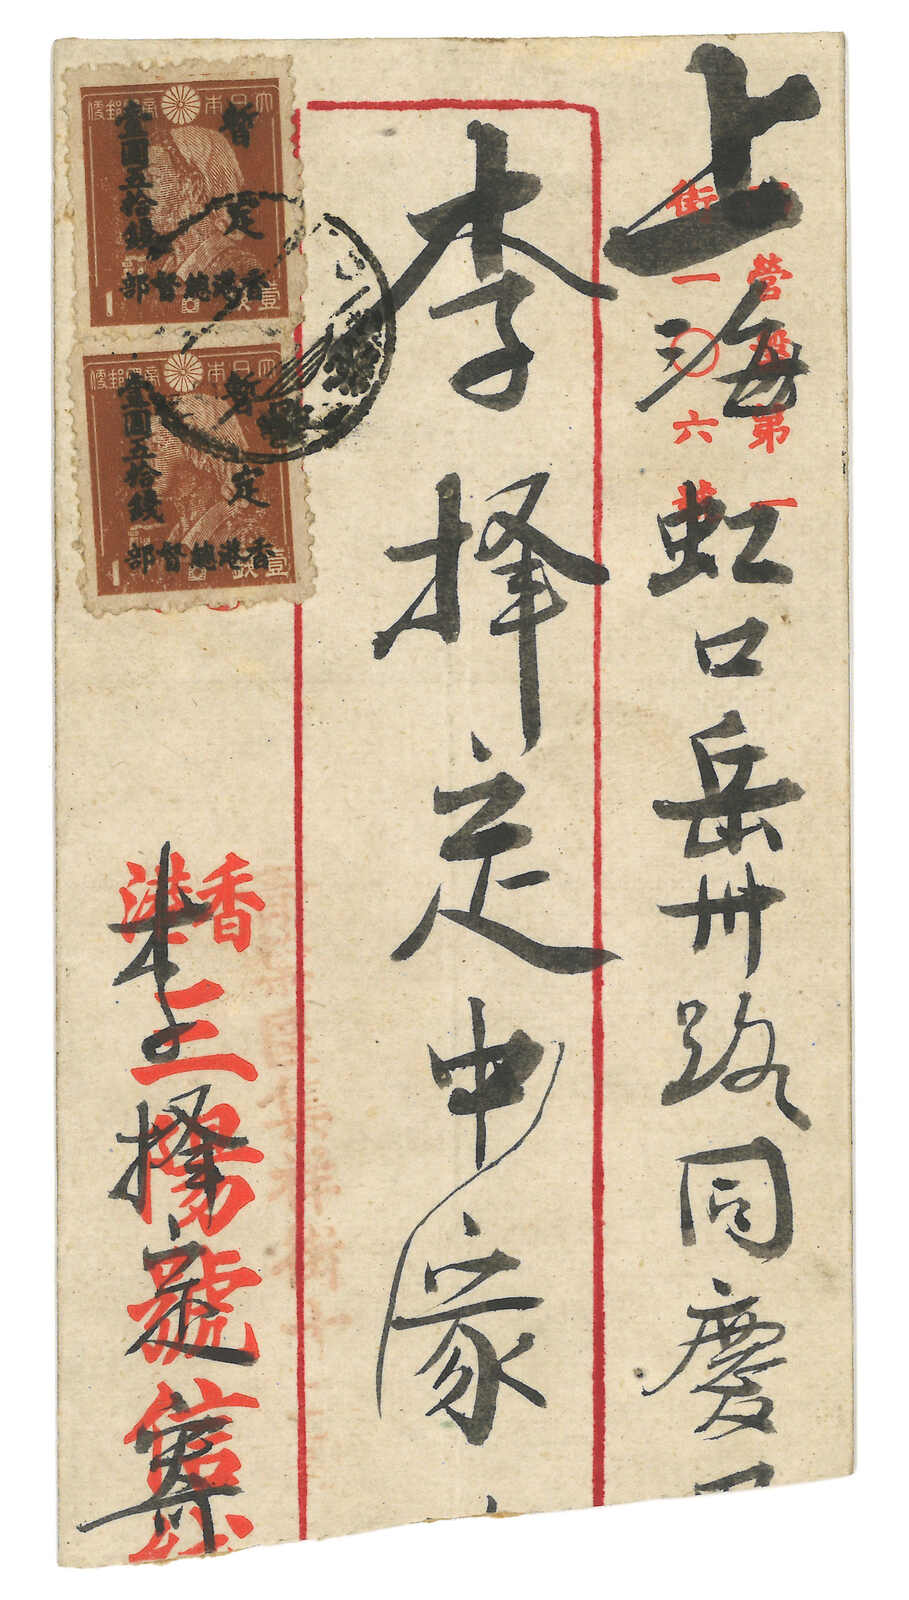 上海虹口岳州路同慶
營盤第一
街一〇六號
李择定申家
暫定
壹圓五拾錢
香港總督部
大日本帝國郵便
壹錢
1
暫定
壹圓五拾錢
香港總督部
大日本帝國郵便
壹錢
1
香港
三陽號信
李择定寄